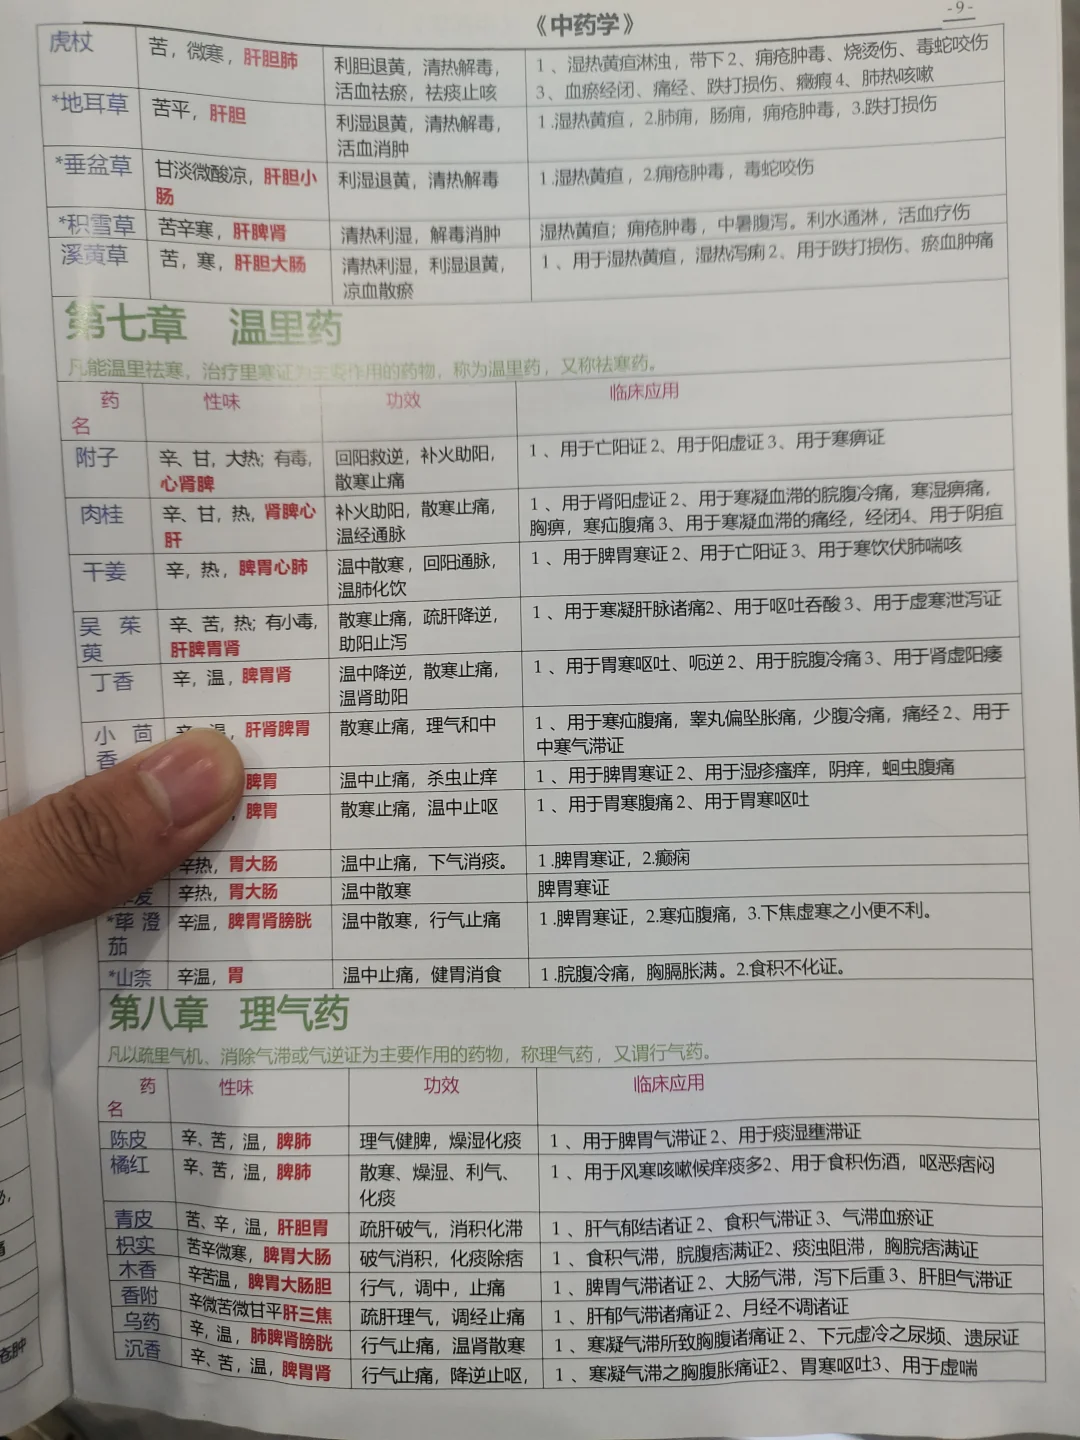 《中药学》
- 9 -
虎杖 苦，微寒，肝胆肺 利胆退黄，清热解毒， 1 、湿热黄疸淋浊，带下 2、痈疮肿毒、烧烫伤、毒蛇咬伤
活血祛瘀，祛痰止咳 3、血瘀经闭、痛经、跌打损伤、癥瘕 4、肺热咳嗽
*地耳草 苦平，肝胆 利湿退黄，清热解毒， 1 .湿热黄疸，2.肺痈，肠痈，痈疮肿毒，3.跌打损伤
活血消肿
*垂盆草 甘淡微酸凉，肝胆小 利湿退黄，清热解毒 1 .湿热黄疸，2.痈疮肿毒，毒蛇咬伤
肠
*积雪草 苦辛寒，肝脾肾 清热利湿，解毒消肿 湿热黄疸；痈疮肿毒，中暑腹泻。利水通淋，活血疗伤
溪黄草 苦，寒，肝胆大肠 清热利湿，利湿退黄， 1 、用于湿热黄疸，湿热泻痢 2、用于跌打损伤、瘀血肿痛
凉血散瘀
第七章 温里药
凡能温里祛寒，治疗里寒证为主要作用的药物，称为温里药，又称祛寒药。
药 性味 功效 临床应用
名
附子 辛、甘，大热；有毒， 回阳救逆，补火助阳， 1 、用于亡阳证 2、用于阳虚证 3、用于寒痹证
心肾脾 散寒止痛
肉桂 辛、甘，热，肾脾心 补火助阳，散寒止痛， 1 、用于肾阳虚证 2、用于寒凝血滞的脘腹冷痛，寒湿痹痛，
肝 温经通脉 胸痹，寒疝腹痛 3、用于寒凝血滞的痛经，经闭4、用于阴疽
干姜 辛，热，脾胃心肺 温中散寒，回阳通脉， 1 、用于脾胃寒证 2、用于亡阳证 3、用于寒饮伏肺喘咳
温肺化饮
吴 茱 辛、苦，热；有小毒， 散寒止痛，疏肝降逆， 1 、用于寒凝肝脉诸痛2、用于呕吐吞酸 3、用于虚寒泄泻证
萸 肝脾胃肾 助阳止泻
丁香 辛，温，脾胃肾 温中降逆，散寒止痛， 1 、用于胃寒呕吐、呃逆 2、用于脘腹冷痛 3、用于肾虚阳痿
温肾助阳
小 茴 辛，温，肝肾脾胃 散寒止痛，理气和中 1 、用于寒疝腹痛，睾丸偏坠胀痛，少腹冷痛，痛经 2、用于
香 中寒气滞证
脾胃 温中止痛，杀虫止痒 1 、用于脾胃寒证 2、用于湿疹瘙痒，阴痒，蛔虫腹痛
，脾胃 散寒止痛，温中止呕 1 、用于胃寒腹痛 2、用于胃寒呕吐
辛热，胃大肠 温中止痛，下气消痰。 1 .脾胃寒证，2.癫痫
辛热，胃大肠 温中散寒 脾胃寒证
*荜 澄 辛温，脾胃肾膀胱 温中散寒，行气止痛 1 .脾胃寒证，2.寒疝腹痛，3.下焦虚寒之小便不利。
茄
*山柰 辛温，胃 温中止痛，健胃消食 1 .脘腹冷痛，胸膈胀满。2.食积不化证。
第八章 理气药
凡以疏里气机、消除气滞或气逆证为主要作用的药物，称理气药，又谓行气药。
药 性味 功效 临床应用
名
陈皮 辛、苦，温，脾肺 理气健脾，燥湿化痰 1 、用于脾胃气滞证 2、用于痰湿壅滞证
橘红 辛、苦，温，脾肺 散寒、燥湿、利气、 1 、用于风寒咳嗽候痒痰多2、用于食积伤酒，呕恶痞闷
化痰
青皮 苦、辛，温，肝胆胃 疏肝破气，消积化滞 1 、肝气郁结诸证 2、食积气滞证 3、气滞血瘀证
枳实 苦辛微寒，脾胃大肠 破气消积，化痰除痞 1 、食积气滞，脘腹痞满证2、痰浊阻滞，胸脘痞满证
木香 辛苦温，脾胃大肠胆 行气，调中，止痛 1 、脾胃气滞诸证 2、大肠气滞，泻下后重 3、肝胆气滞证
香附 辛微苦微甘平肝三焦 疏肝理气，调经止痛 1 、肝郁气滞诸痛证 2、月经不调诸证
乌药 辛，温，肺脾肾膀胱 行气止痛，温肾散寒 1 、寒凝气滞所致胸腹诸痛证 2、下元虚冷之尿频、遗尿证
沉香 辛、苦，温，脾胃肾 行气止痛，降逆止呕， 1 、寒凝气滞之胸腹胀痛证2、胃寒呕吐3、用于虚喘